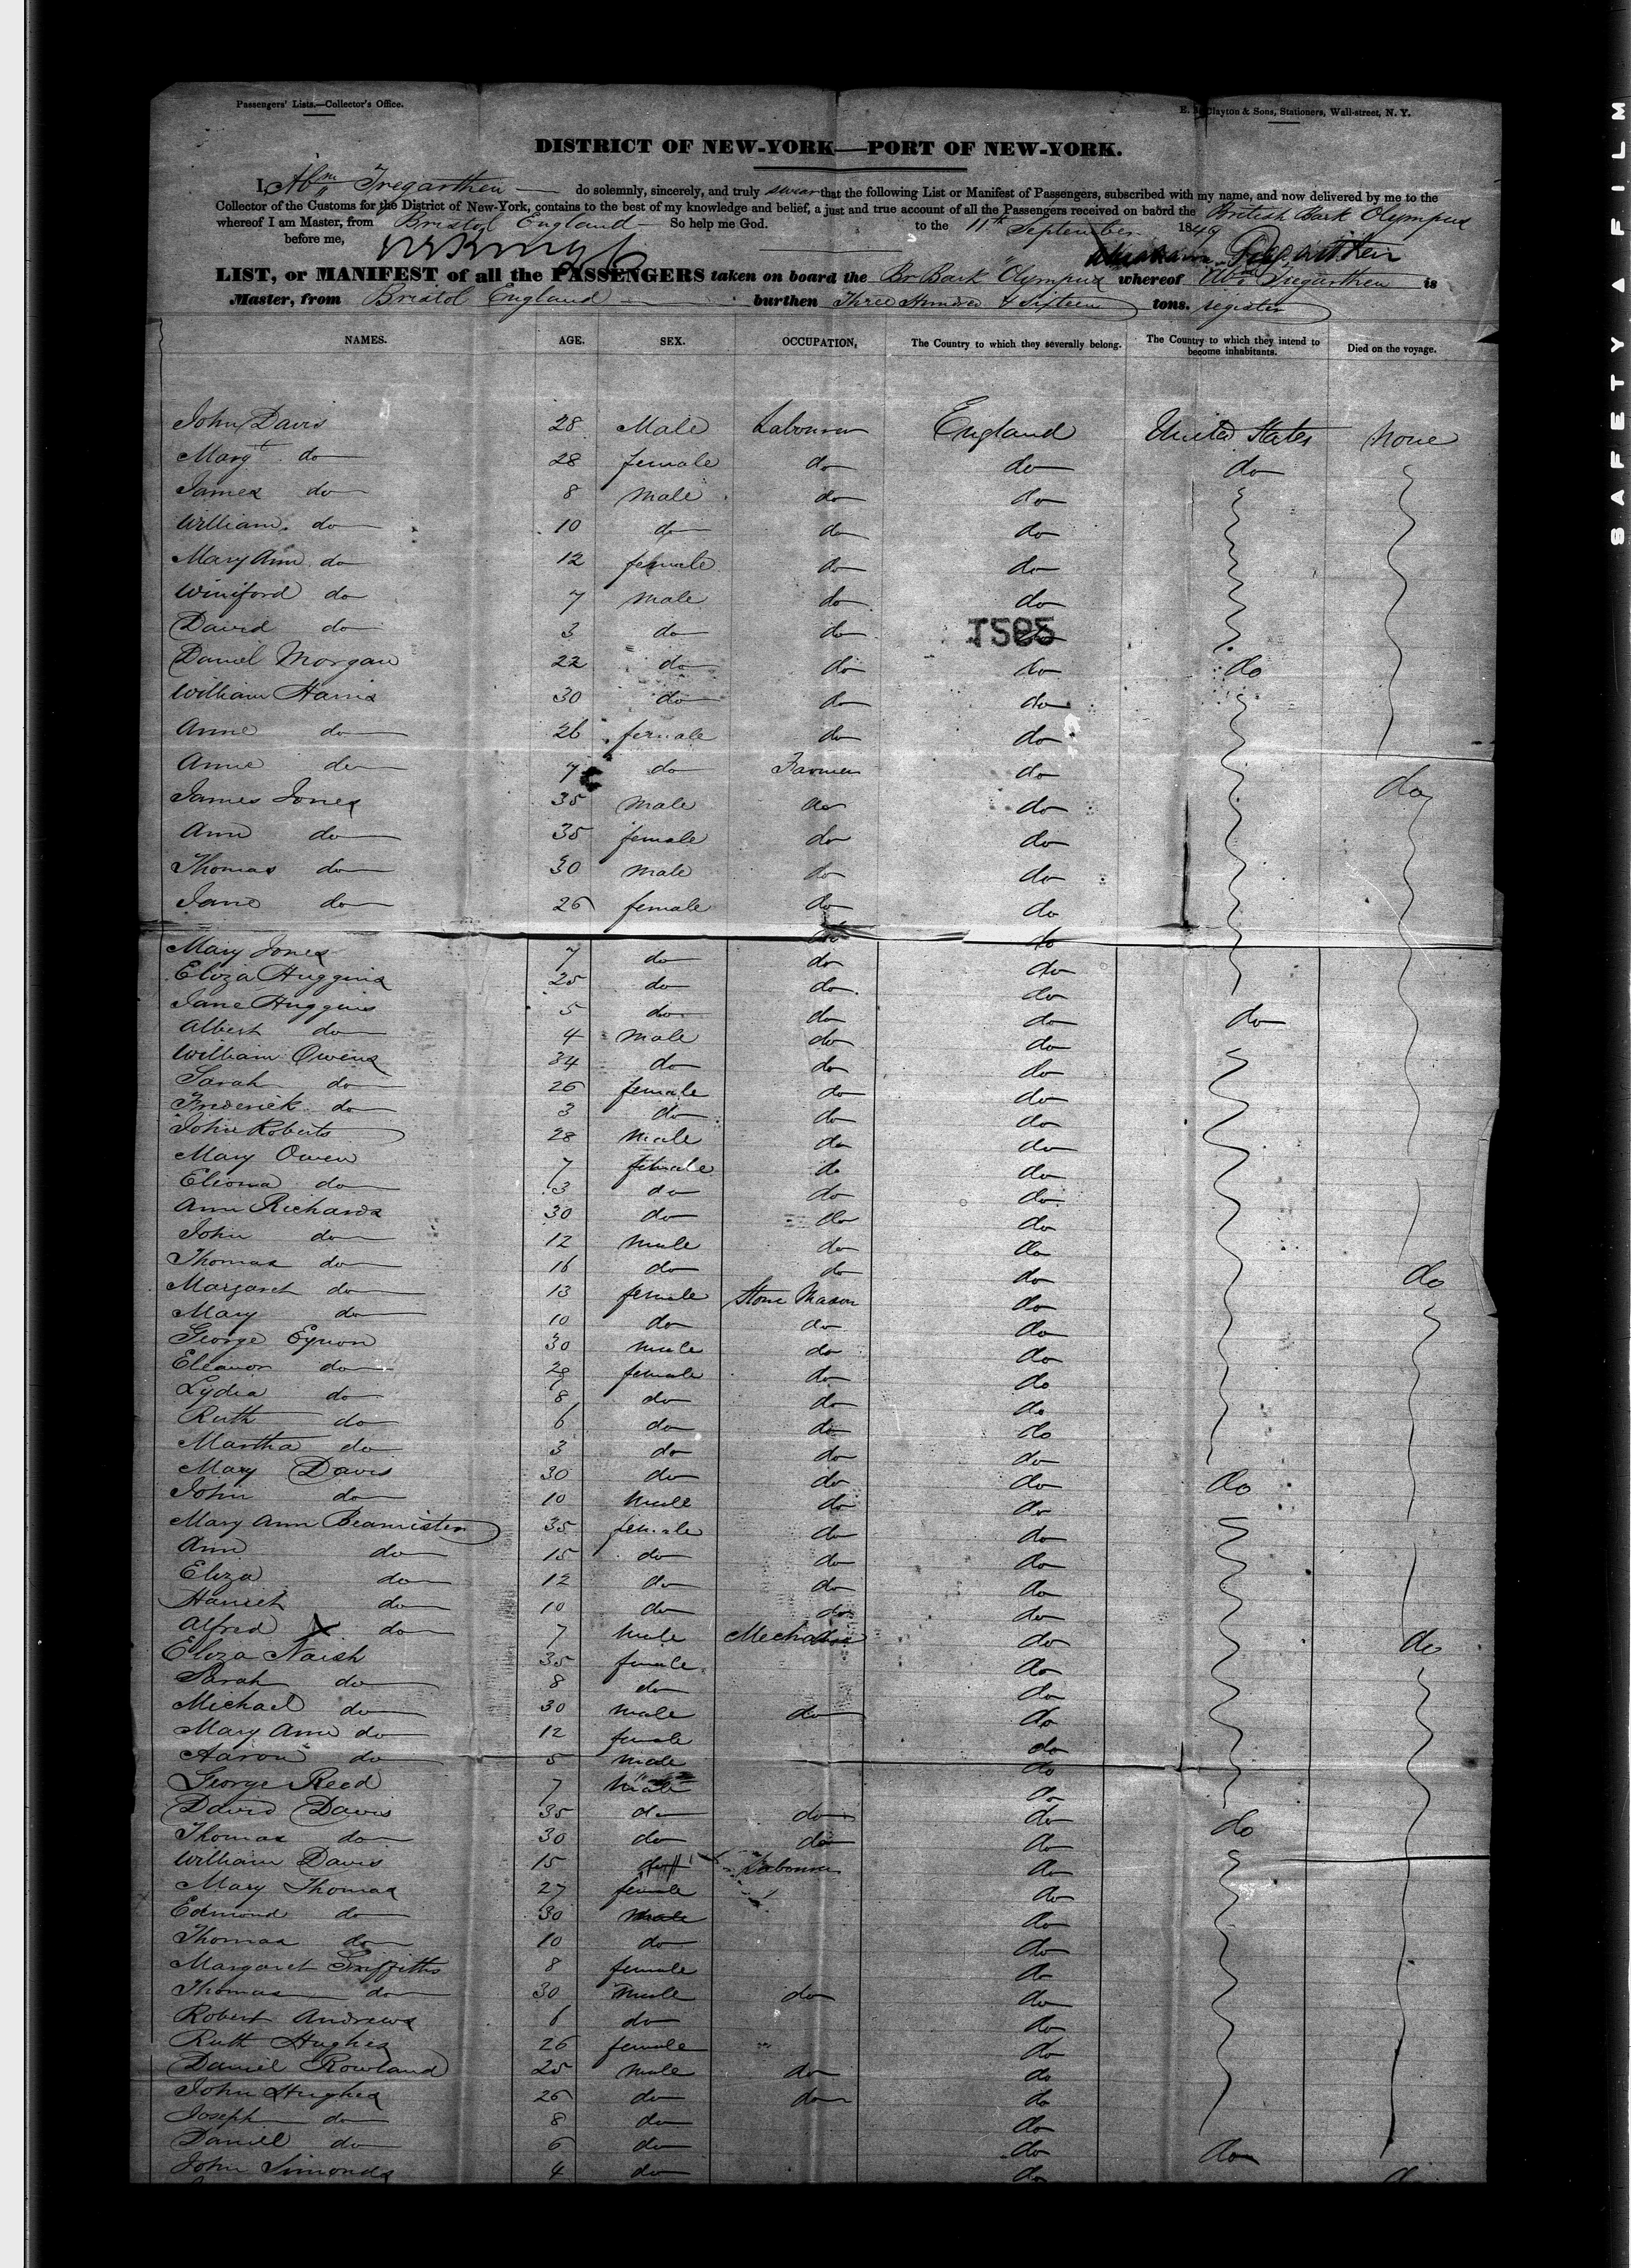 Passengers' Lists.—Collector's Office.
E. B. Clayton & Sons, Stationers, Wall-street, N. Y.
DISTRICT OF NEW-YORK—PORT OF NEW-YORK.
I, Abm Tregarthen do solemnly, sincerely, and truly swear that the following List or Manifest of Passengers, subscribed with my name, and now delivered by me to the
Collector of the Customs for the District of New-York, contains to the best of my knowledge and belief, a just and true account of all the Passengers received on baord the British Bark Olympus
whereof I am Master, from Bristol England So help me God. to the 11th September 1849
before me, Abraham Tregarthen
LIST, or MANIFEST of all the PASSENGERS taken on board the Br Bark "Olympus whereof Abm Tregarthen is
Master, from Bristol England burthen Three Hundred & Sixteen tons. register
NAMES. AGE. SEX. OCCUPATION, The Country to which they severally belong. The Country to which they intend to become inhabitants. Died on the voyage.
John Davis 28 Male Labourer England United States None
Margt do 28 female do do do
James do 8 male do do
William do 10 do do do
Mary Ann do 12 female do do
Winiford do 7 male do do
David do 3 do do do
1595
Daniel Morgan 22 do do do do
William Harris 30 do do do
Anne do 26 female do do
Anne do 7 do Farmer do do
James Jones 35 male do do
Ann do 35 female do do
Thomas do 30 male do do
Jane do 26 female do do
do do
Mary Jones 7 do do do
Eliza Huggins 25 do do do
Jane Huggins 5 do do do do
Albert do 4 male do do
William Owens 34 do do do
Sarah do 26 female do do
Frederick do 3 do do do
John Roberts 28 male do do
Mary Owen 7 female do do
Eleona do 3 do do do
Ann Richards 30 do do do
John do 12 male do do
Thomas do 16 do do do do
Margaret do 13 female Stone Mason do
Mary do 10 do do do
George Eynon 30 male do do
Eleanor do 28 female do do
Lydia do 8 do do do
Ruth do 6 do do do
Martha do 3 do do do
Mary Davis 30 do do do do
John do 10 male do do
Mary Ann Beamister 35 female do do
Ann do 15 do do do
Eliza do 12 do do do
Harriet do 10 do do do
Alfred X do 7 male Mechanic do do
Eliza Naish 35 female do
Sarah do 8 do do
Michael do 30 male do do
Mary Ann do 12 female do
Aaron do 5 male do
George Reed 7 male do
David Davis 35 do do do do
Thomas do 30 do do do
William Davis 15 do Labourer do
Mary Thomas 27 female do
Edmond do 30 male do
Thomas do 10 do do
Margaret Griffiths 8 female do
Thomas do 30 male do do
Robert Andrews 6 do do
Ruth Hughes 26 female do
Daniel Rowland 25 male do do
John Hughes 26 do do do
Joseph do 8 do do
Daniel do 6 do do do
John Simonds 4 do do
SAFETY A FILM